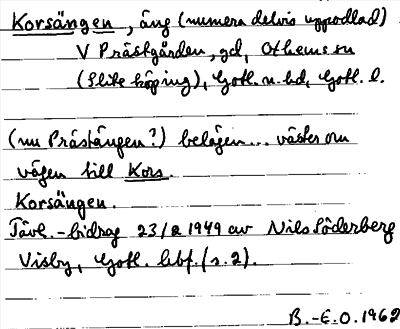 Korsängen, äng (numera delvis uppodlad)
V Prästgården, gd, Othems sn
(Slite köping), Gotl. n. hd, Gotl. l.
(nu Prästängen?) belägen... väster om
vägen till Kors.
Korsängen.
Tävl.-bidrag 23/2 1949 av Nils Söderberg
Visby, Gotl. bbf. (s. 2).
B.-E.O. 1962